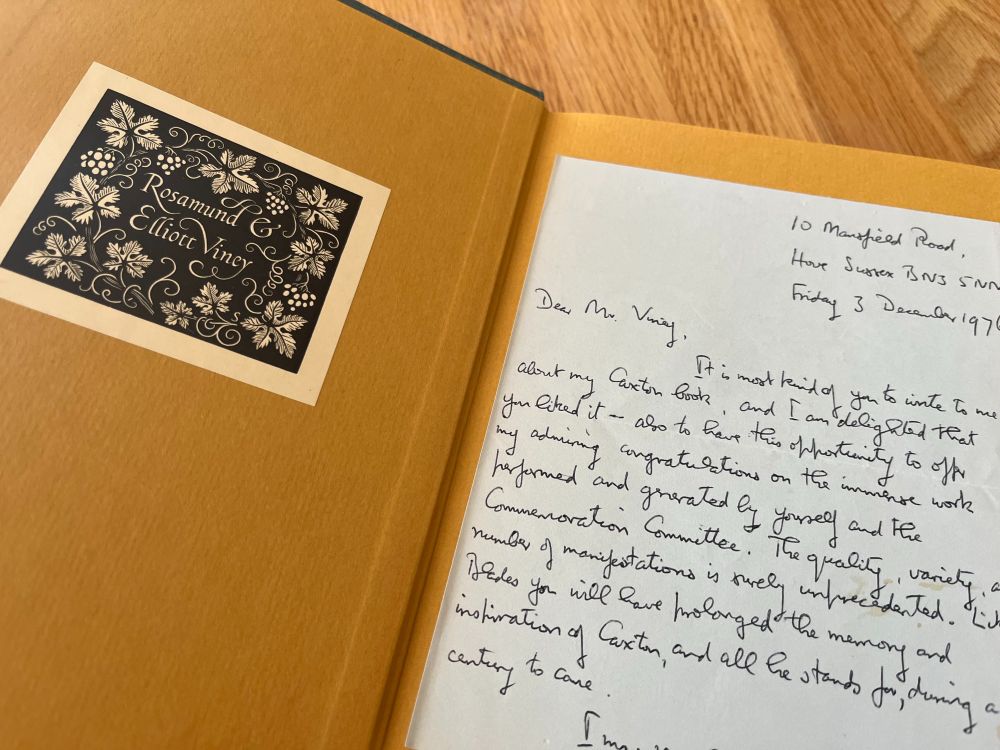 Rosamund &
Elliott Viney
10 Mansfield Road,
Hove Sussex BN3 5NN
Friday 3 December 1976
Dear Mr. Viney,
It is most kind of you to write to me
about my Caxton book, and I am delighted that
you liked it — also to have this opportunity to offer
my admiring congratulations on the immense work
performed and generated by yourself and the
Commemoration Committee. The quality, variety,
number of manifestations is surely unprecedented. Like
Blades you will have prolonged the memory and
inspiration of Caxton, and all he stands for, during a
century to come.
I